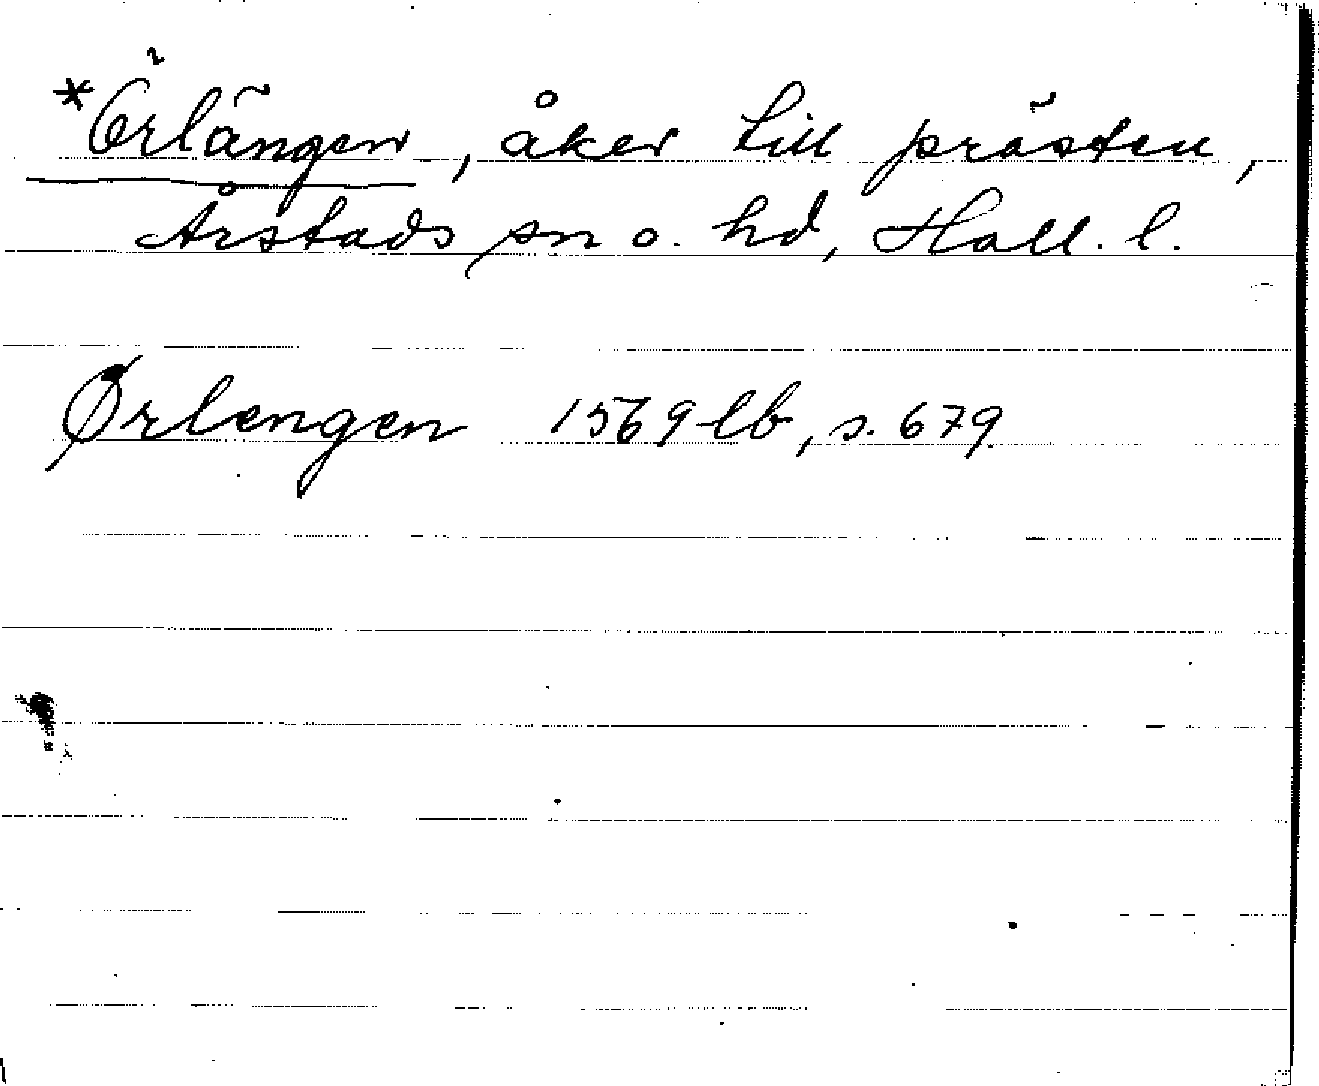 *Örlängen, åker till prästen,
Årstads sn o. hd, Hall. l.
Ørlengen 1569 lb, s. 679